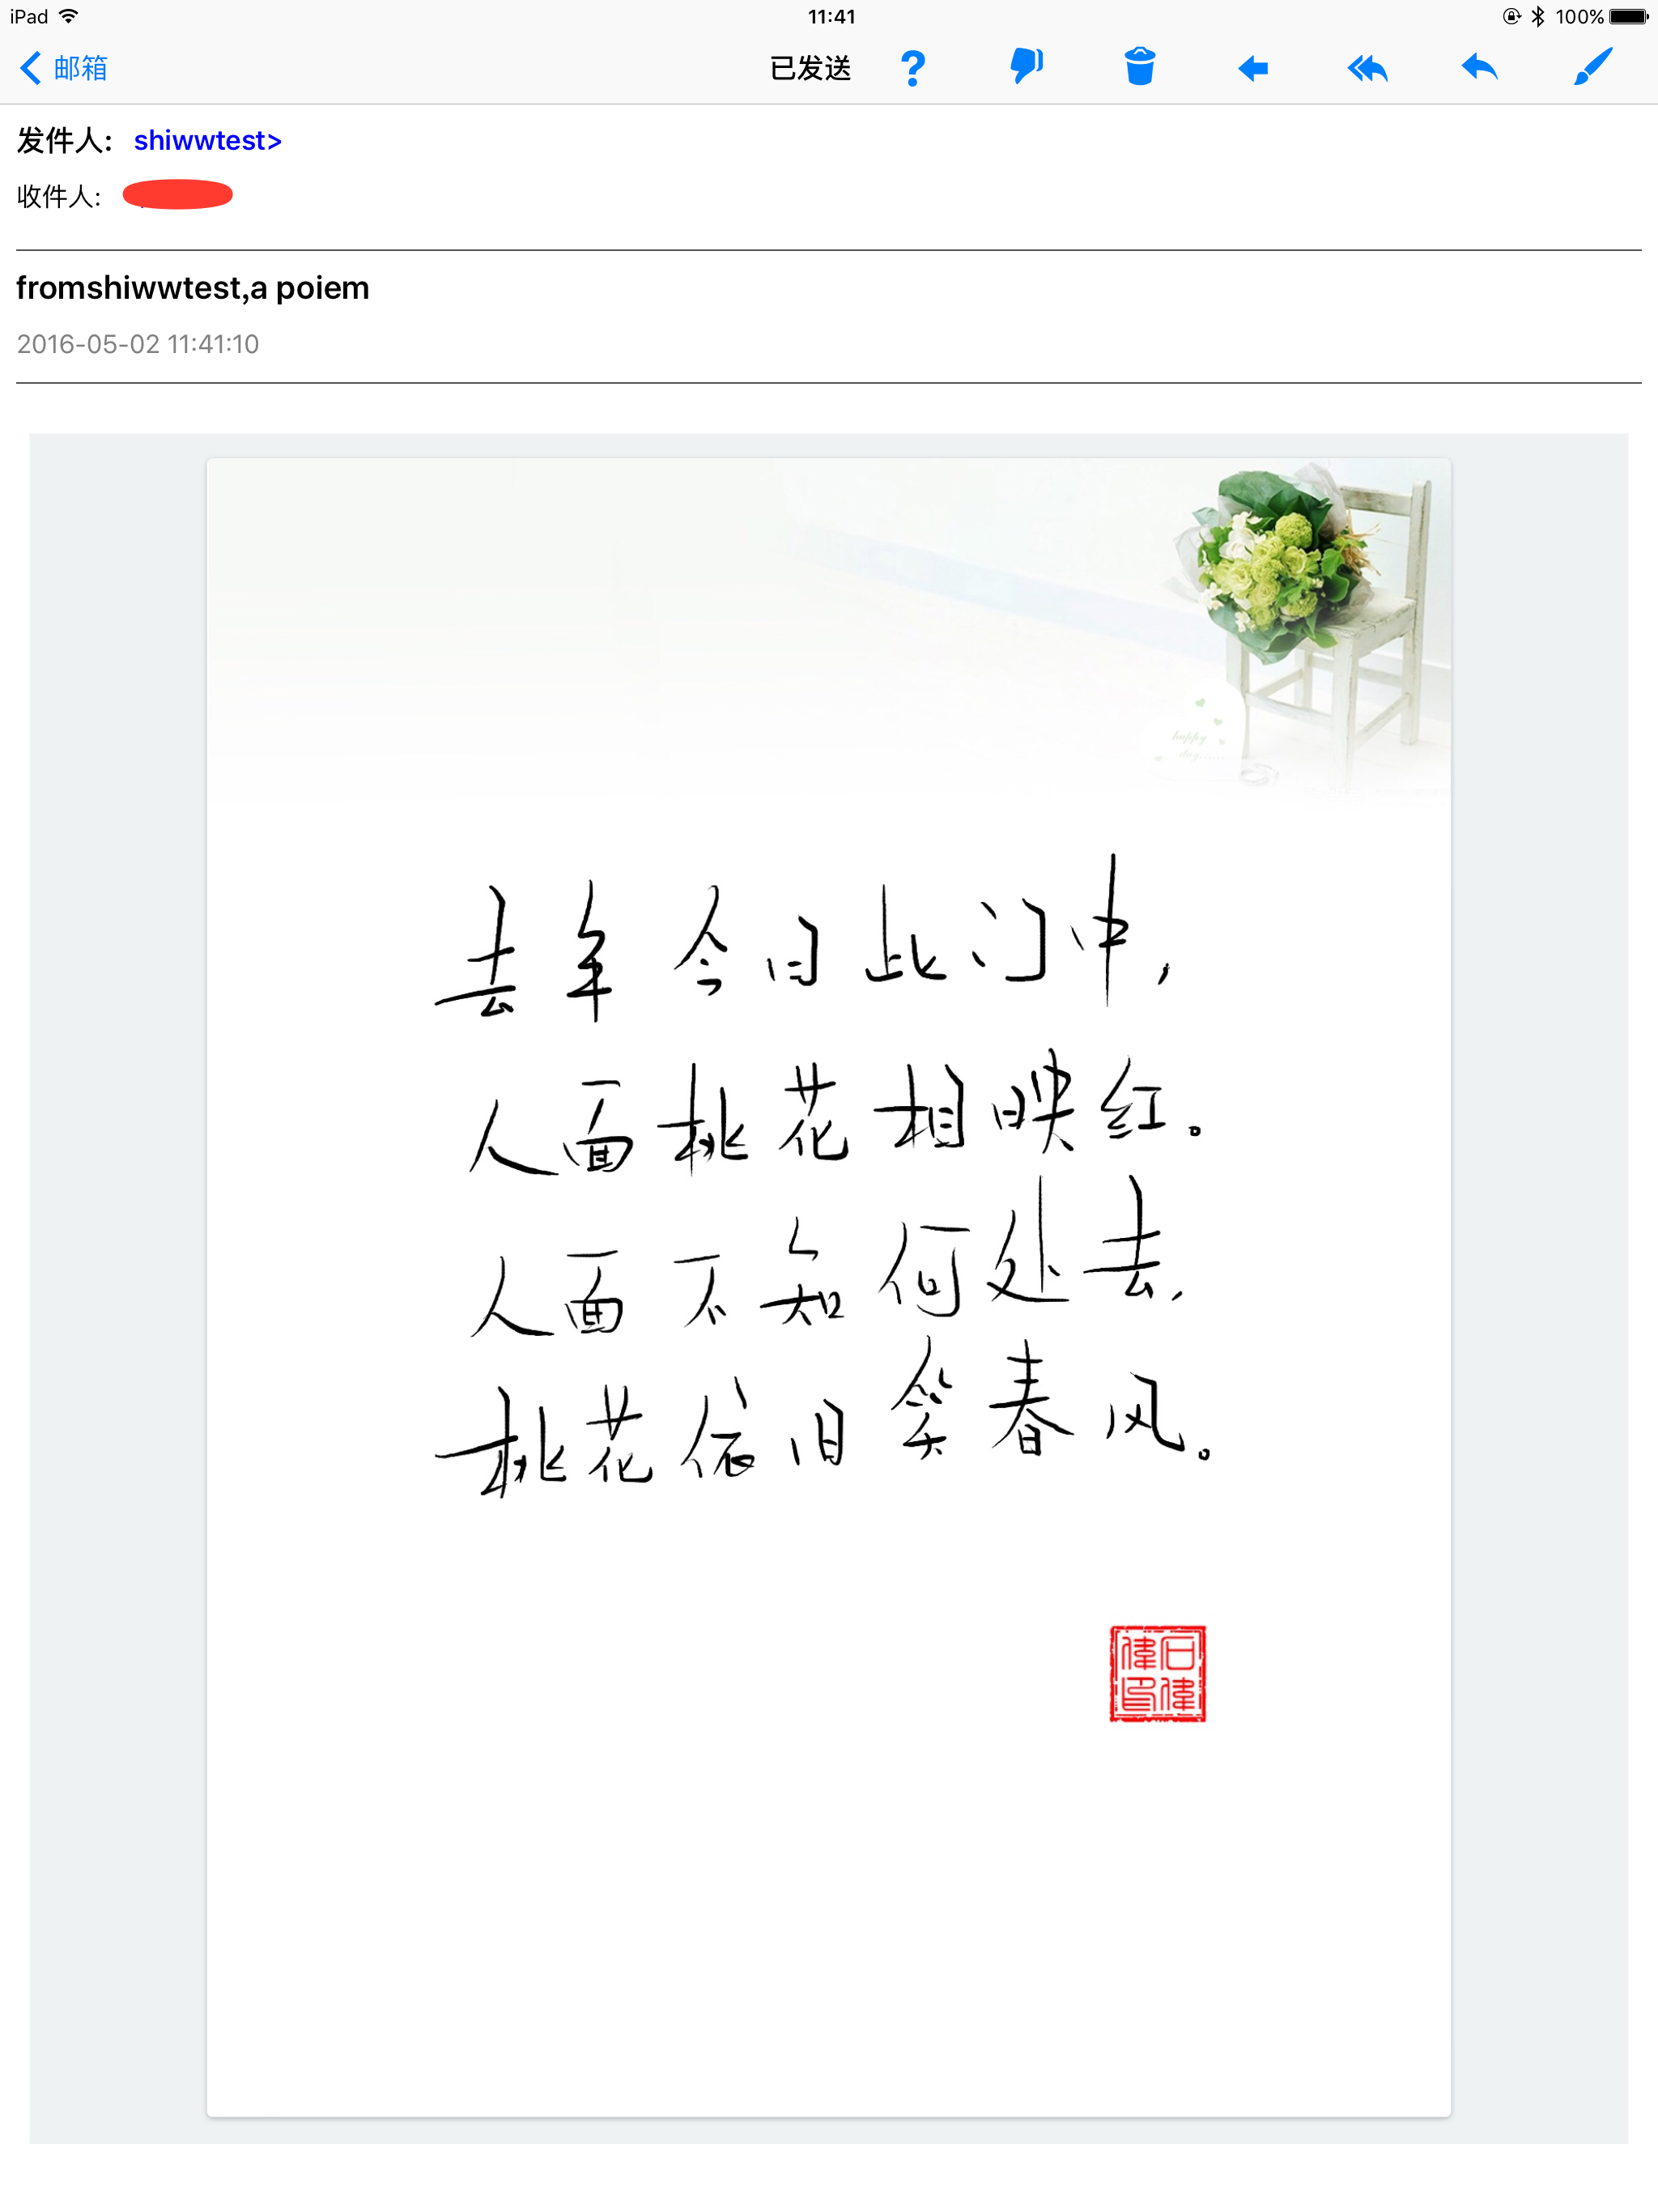 iPad 11:41 100%
邮箱 已发送
发件人: shiwwtest>
收件人:
fromshiwwtest,a poiem
2016-05-02 11:41:10
happy
day......
去年今日此门中,
人面桃花相映红。
人面不知何处去,
桃花依旧笑春风。
石偉
偉印